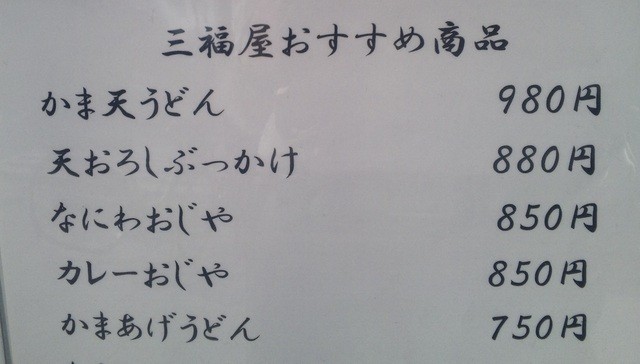 三福屋おすすめ商品
かま天うどん 980円
天おろしぶっかけ 880円
なにわおじや 850円
カレーおじや 850円
かまあげうどん 750円